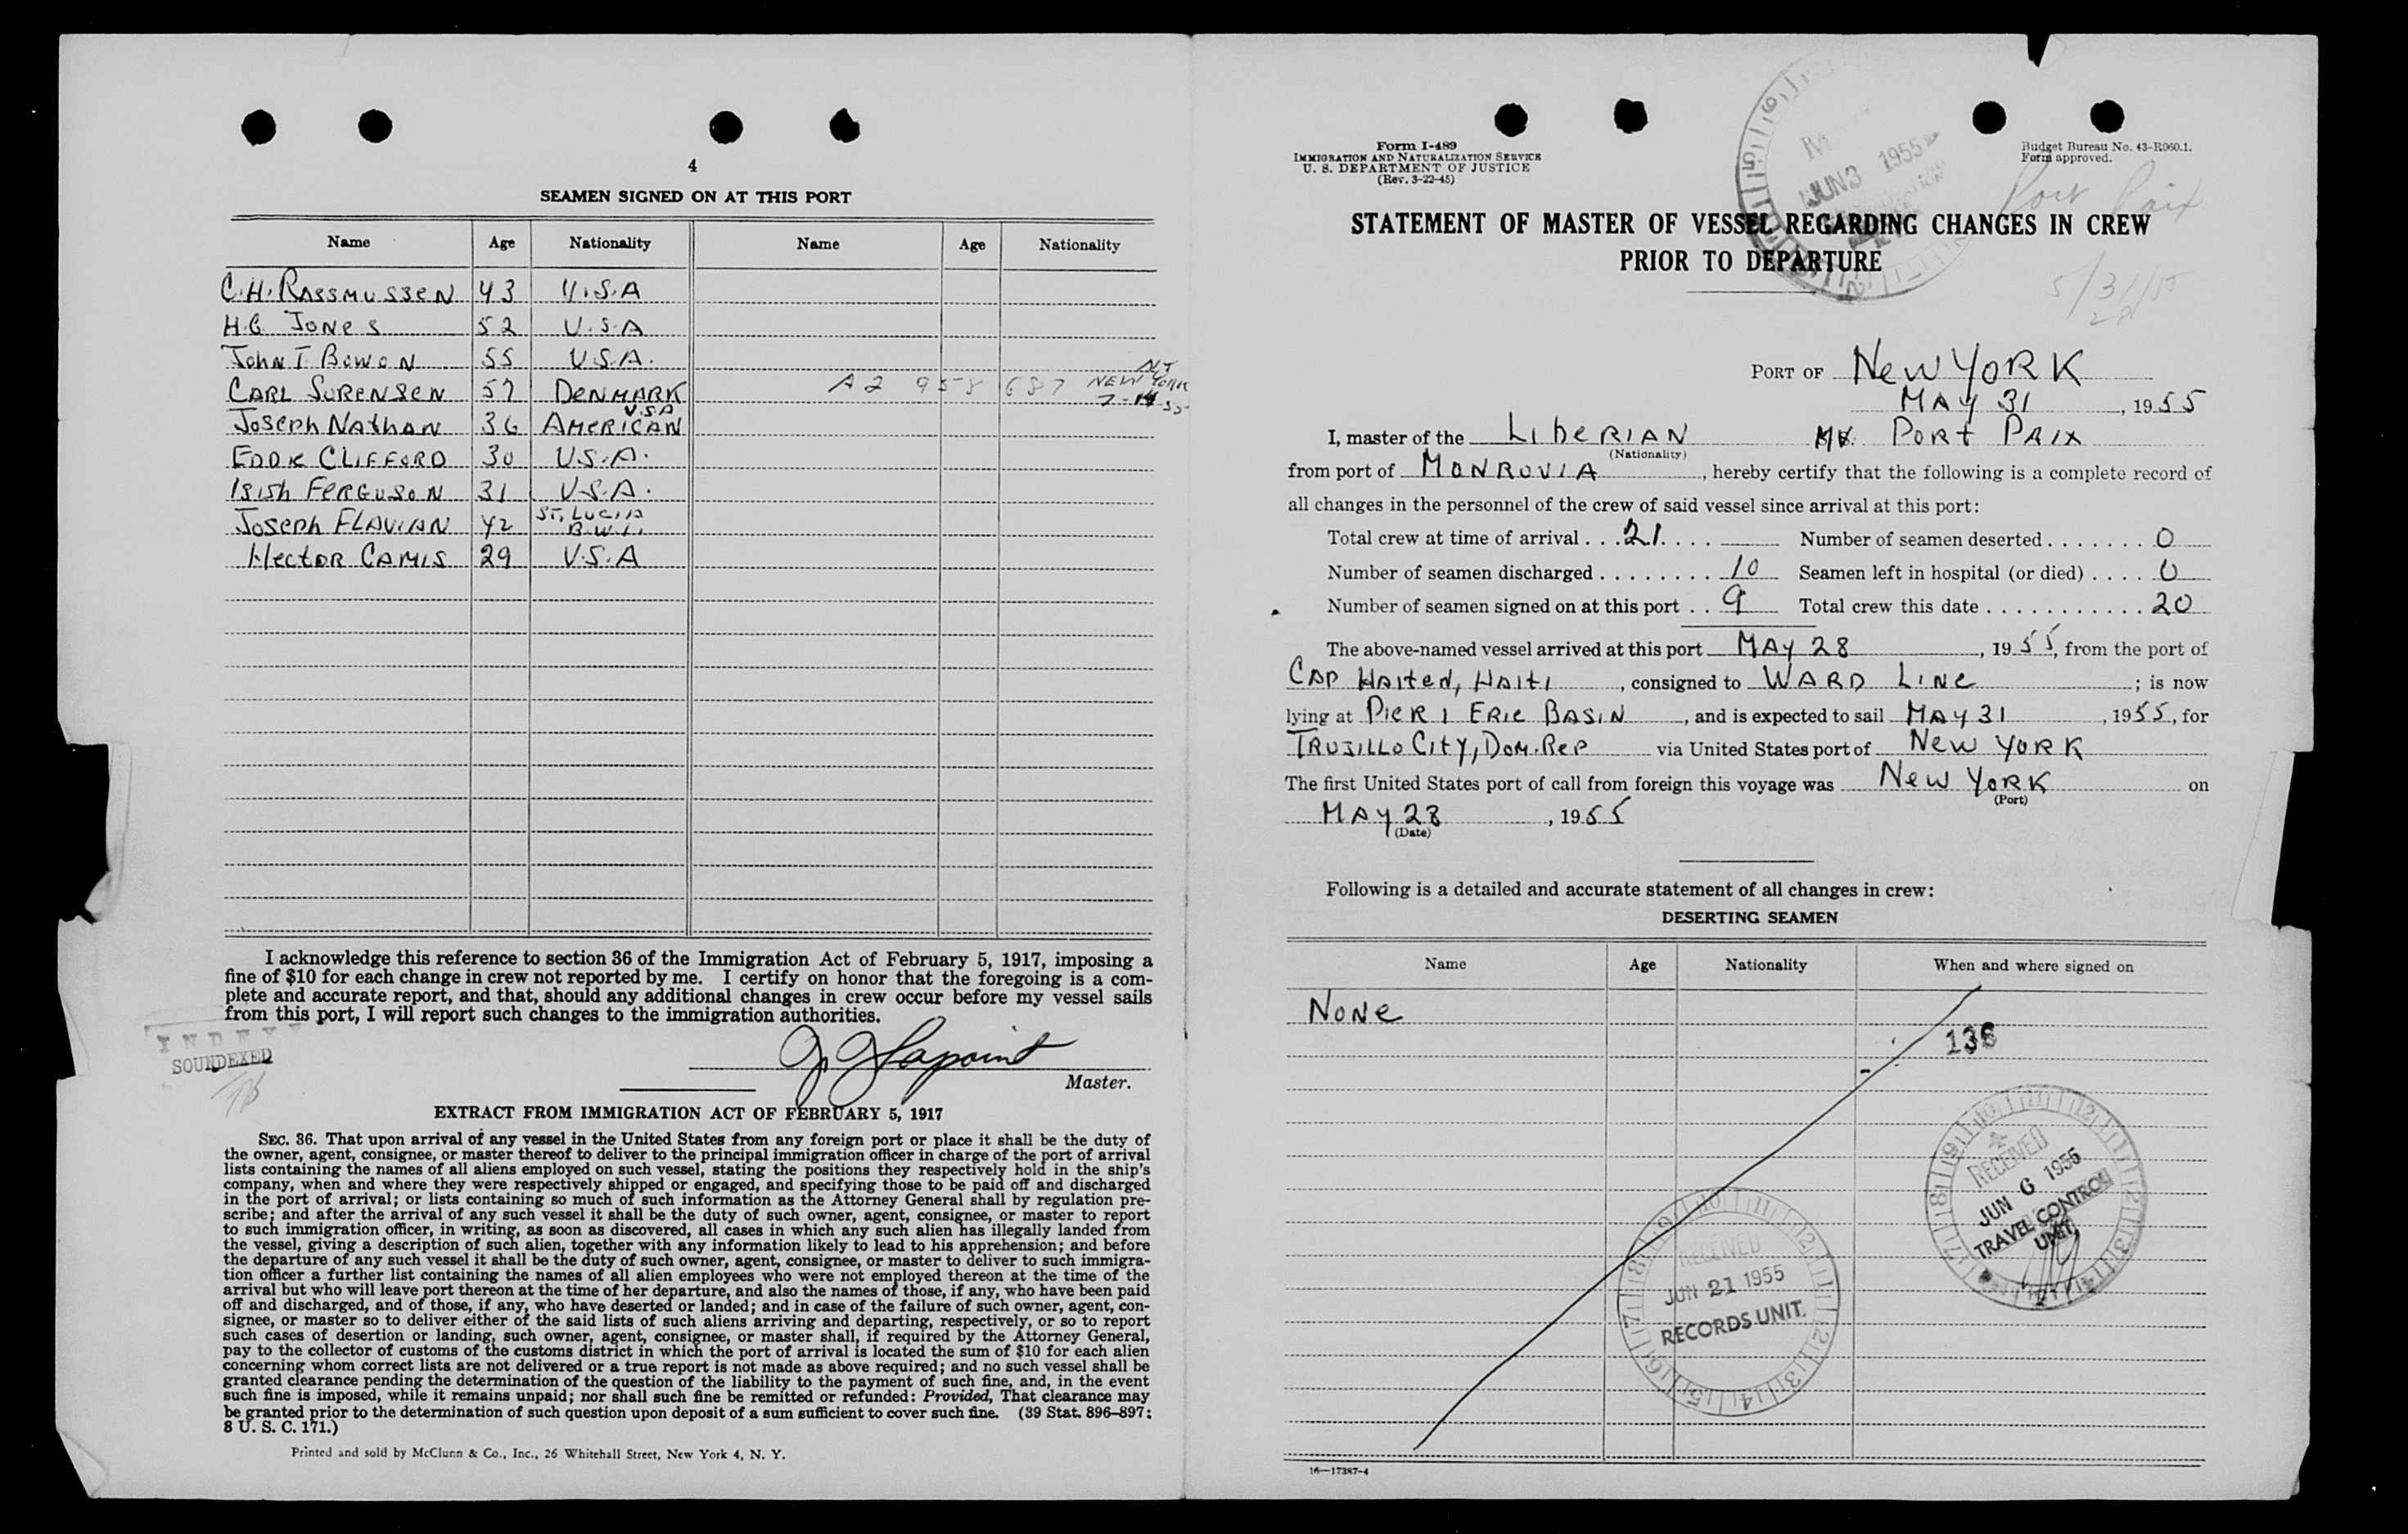 4
SEAMEN SIGNED ON AT THIS PORT
Name Age Nationality Name Age Nationality
C.H. RASSMUSSEN 43 U.S.A
H.G. JONES 52 U.S.A
JOHN T. BOWON 55 U.S.A.
CARL SORENSEN 57 DENMARK A2 958 687 NEW YORK
JOSEPH NATHAN 36 AMERICAN U.S.A
EDDK CLIFFORD 30 U.S.A.
ISISH FERGUSON 31 U.S.A.
JOSEPH FLAVIAN 42 ST. LUCIA B.W.I.
HECTOR CAMIS 29 U.S.A
I acknowledge this reference to section 36 of the Immigration Act of February 5, 1917, imposing a
fine of $10 for each change in crew not reported by me. I certify on honor that the foregoing is a com-
plete and accurate report, and that, should any additional changes in crew occur before my vessel sails
from this port, I will report such changes to the immigration authorities.
INDEX
SOUNDEXED
Lapoint
Master.
EXTRACT FROM IMMIGRATION ACT OF FEBRUARY 5, 1917
SEC. 36. That upon arrival of any vessel in the United States from any foreign port or place it shall be the duty of
the owner, agent, consignee, or master thereof to deliver to the principal immigration officer in charge of the port of arrival
lists containing the names of all aliens employed on such vessel, stating the positions they respectively hold in the ship's
company, when and where they were respectively shipped or engaged, and specifying those to be paid off and discharged
in the port of arrival; or lists containing so much of such information as the Attorney General shall by regulation pre-
scribe; and after the arrival of any such vessel it shall be the duty of such owner, agent, consignee, or master to report
to such immigration officer, in writing, as soon as discovered, all cases in which any such alien has illegally landed from
the vessel, giving a description of such alien, together with any information likely to lead to his apprehension; and before
the departure of any such vessel it shall be the duty of such owner, agent, consignee, or master to deliver to such immigra-
tion officer a further list containing the names of all alien employees who were not employed thereon at the time of the
arrival but who will leave port thereon at the time of her departure, and also the names of those, if any, who have been paid
off and discharged, and of those, if any, who have deserted or landed; and in case of the failure of such owner, agent, con-
signee, or master so to deliver either of the said lists of such aliens arriving and departing, respectively, or so to report
such cases of desertion or landing, such owner, agent, consignee, or master shall, if required by the Attorney General,
pay to the collector of customs of the customs district in which the port of arrival is located the sum of $10 for each alien
concerning whom correct lists are not delivered or a true report is not made as above required; and no such vessel shall be
granted clearance pending the determination of the question of the liability to the payment of such fine, and, in the event
such fine is imposed, while it remains unpaid; nor shall such fine be remitted or refunded: Provided, That clearance may
be granted prior to the determination of such question upon deposit of a sum sufficient to cover such fine. (39 Stat. 896-897;
8 U. S. C. 171.)
Printed and sold by McClunn & Co., Inc., 26 Whitehall Street, New York 4, N. Y.
Form I-489
IMMIGRATION AND NATURALIZATION SERVICE
U. S. DEPARTMENT OF JUSTICE
(Rev. 3-22-45)
Budget Bureau No. 43-R060.1.
Form approved.
JUN 3 1955
Port Paix
STATEMENT OF MASTER OF VESSEL REGARDING CHANGES IN CREW
PRIOR TO DEPARTURE
5/31/55
PORT OF NEW YORK
MAY 31, 1955
I, master of the LIBERIAN MV. PORT PAIX
(Nationality)
from port of MONROVIA, hereby certify that the following is a complete record of
all changes in the personnel of the crew of said vessel since arrival at this port:
Total crew at time of arrival . . . 21 . . . . Number of seamen deserted . . . . . . . 0
Number of seamen discharged . . . . . . . . 10 Seamen left in hospital (or died) . . . . 0
Number of seamen signed on at this port . . 9 Total crew this date . . . . . . . . . . . 20
The above-named vessel arrived at this port MAY 28, 1955, from the port of
CAP HAITED, HAITI, consigned to WARD LINE; is now
lying at PIER 1 ERIE BASIN, and is expected to sail MAY 31, 1955, for
TRUJILLO CITY, DOM. REP via United States port of NEW YORK
The first United States port of call from foreign this voyage was NEW YORK on
(Port)
MAY 28, 1955
(Date)
Following is a detailed and accurate statement of all changes in crew:
DESERTING SEAMEN
Name Age Nationality When and where signed on
NONE
136
RECEIVED
JUN 6 1955
TRAVEL CONTROL
UNIT
RECEIVED
JUN 21 1955
RECORDS UNIT.
16—17387-4